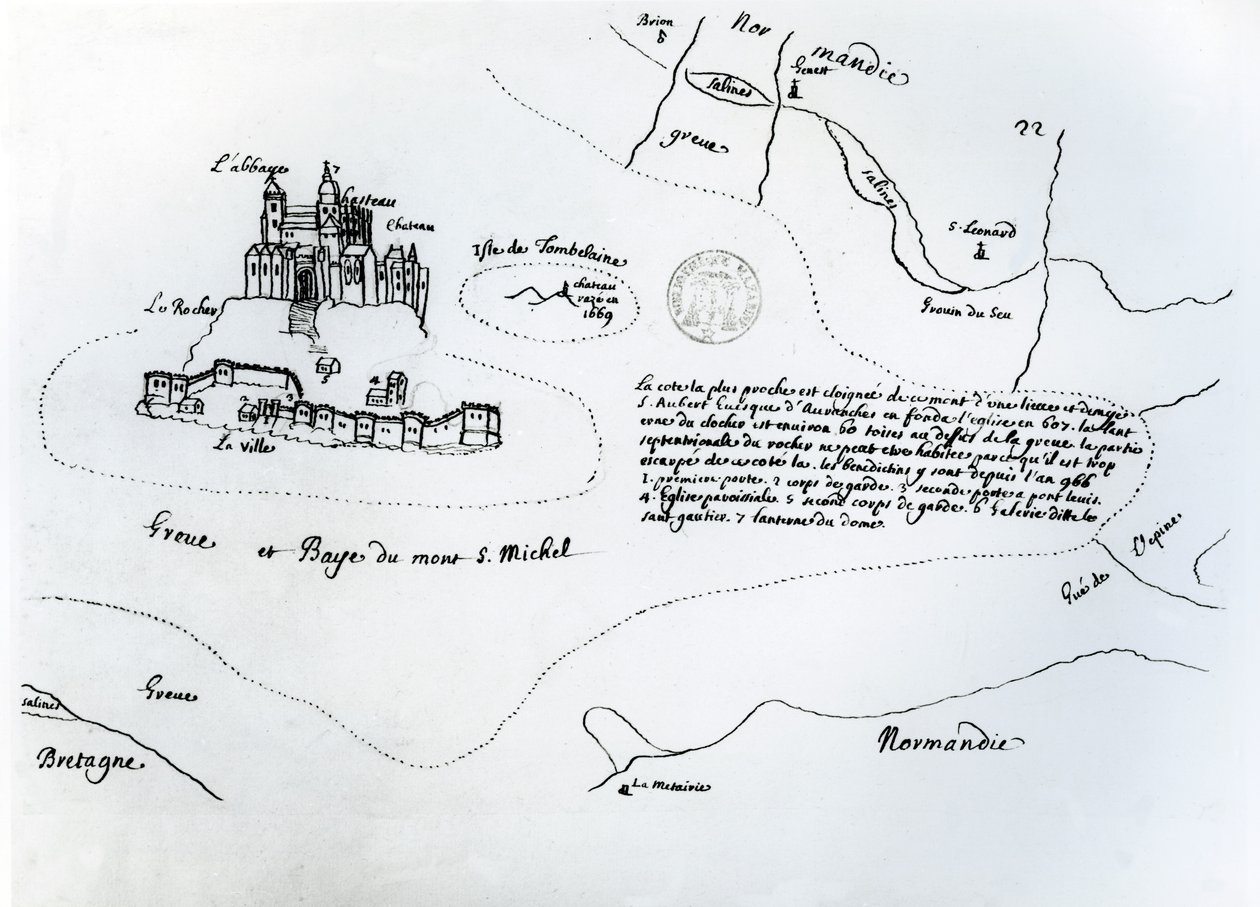 Brion
Nor
mandie
Genest
salines
greue
22
salines
S. Leonard
Grouin du Seu
L'abbaye
7
Chasteau
Chateau
Isle de Tombelaine
chateau
razé en
1669
Le Rocher
BIBLIOTHÈQUE MAZARINE
5
4
2
3
La Ville
La cote la plus proche est eloignée de ce mont d'vne lieue et demye
S. Aubert Euesque d'Auranches en fonda l'eglise en 607. la lant
erne du clocher est enuiron 60 toises au dessus de la greue la partie
septentrionale du rocher ne peut etre habitée parce qu'il est trop
escarpé de ce coté la. les benedictins y sont depuis l'an 966
1. premiere porte. 2 corps de garde. 3 seconde porte a pont leuis.
4. Eglise paroissiale. 5 second corps de garde. 6 Galerie ditte le
saut gautier. 7 lanterne du dome.
Greue et Baye du mont S. Michel
Gué de L'epine
Greue
salines
Bretagne
Normandie
La Metairie